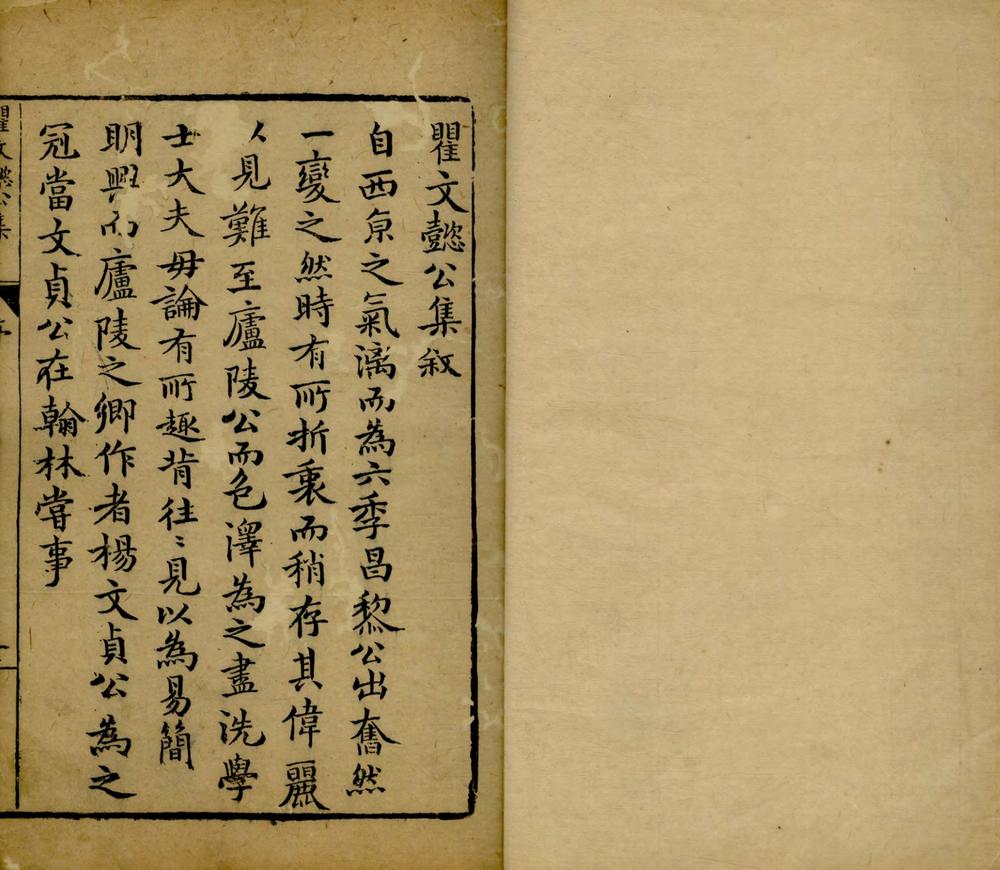 瞿文懿公集敘
自西京之氣漓而為六季昌黎公出奮然
一變之然時有所折衷而稍存其偉麗
人見難至廬陵公而色澤為之盡洗學
士大夫毋論有所趣背往〻見以為易簡
明興而廬陵之鄉作者楊文貞公為之
冠當文貞公在翰林嘗事
瞿文懿公集